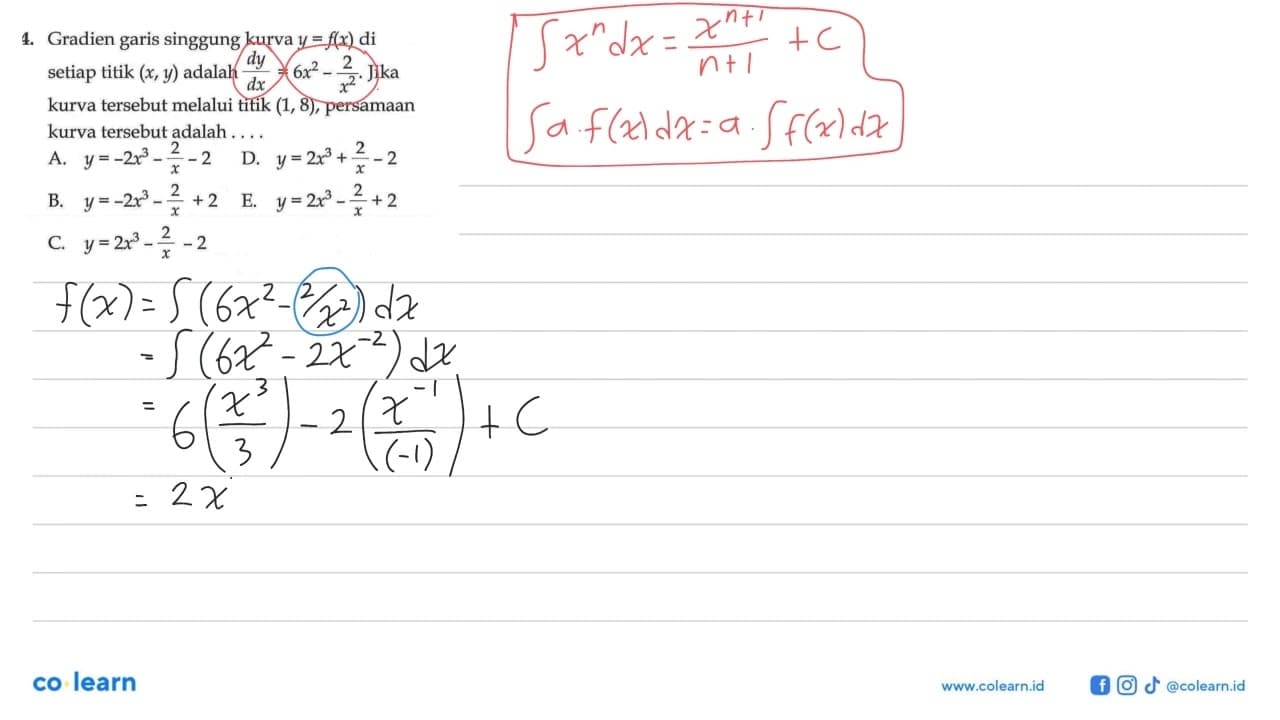 4. Gradien garis singgung kurva y = f(x) di
setiap titik (x, y) adalah dy/dx = 6x² – 2/x². Jika
kurva tersebut melalui titik (1, 8), persamaan
kurva tersebut adalah . . . .
A. y = –2x³ – 2/x – 2 D. y = 2x³ + 2/x – 2
B. y = –2x³ – 2/x + 2 E. y = 2x³ – 2/x + 2
C. y = 2x³ – 2/x – 2
∫xⁿdx = xⁿ⁺¹/n+1 + C
∫a.f(x)dx = a.∫f(x)dx
f(x) = ∫(6x² - 2/x²)dx
= ∫(6x² - 2x⁻²)dx
= 6(x³/3) - 2(x⁻¹/(-1)) + C
= 2x
co learn
www.colearn.id
@colearn.id